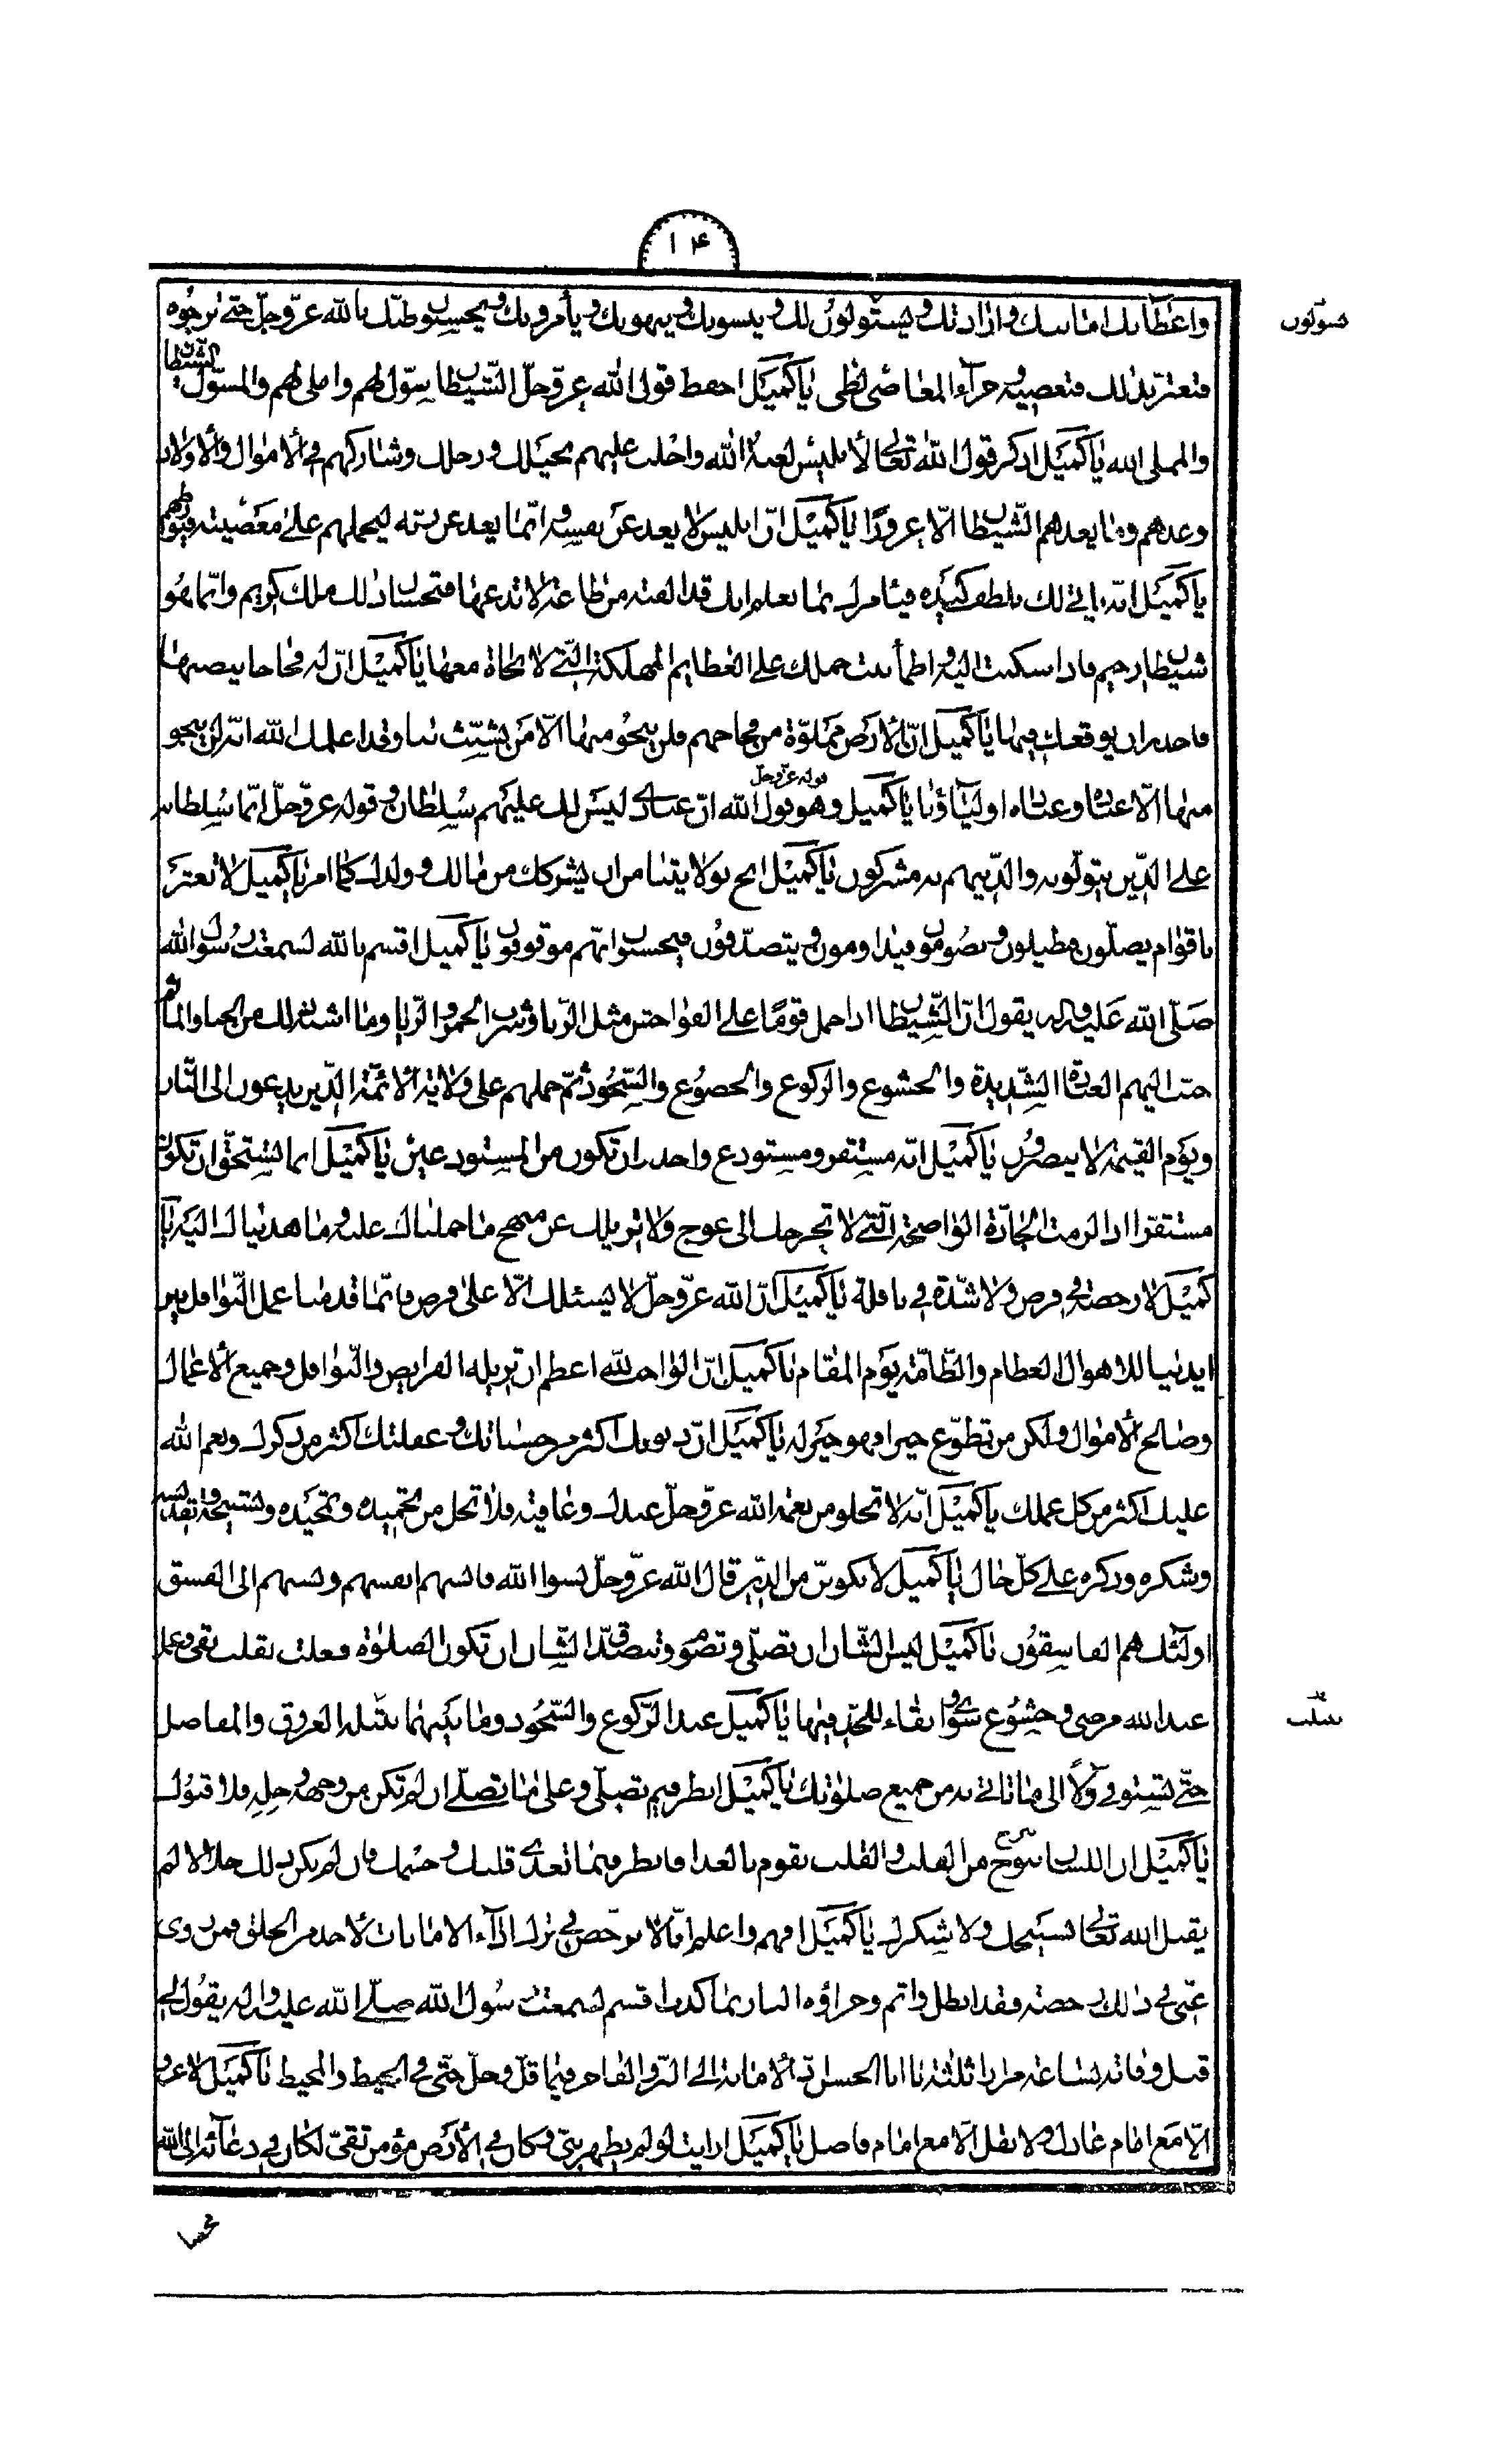 ١۴
واعطائك امانيك وارادتك ويسولون لك وينسونك وينهونك ويأمرونك ويحسنون ظنك بالله عزّوجلّ حتّى ترجوه
هسولون
فتغتر بذلك فتعصيه وجزاء العاصى لظى يا كميل احفظ قول الله عزّوجلّ الشيطان سوّل لهم واملى لهم والمسوّل الشيطان
والمملى الله يا كميل اذكر قول الله تعالى لابليس لعنه الله واجلب عليهم بخيلك ورجلك وشاركهم فى الاموال والاولاد
وعدهم وما يعدهم الشيطان الّا غرورًا يا كميل انّ ابليس لا يعد عن نفسه وانّما يعد عن ربّه ليحملهم على معصيته فيورطهم
يا كميل انّه ياتى لك بلطف كيده فيأمرك بما يعلم انك قد الفته من طاعة لا تدعها فتحسب ان ذلك ملك كريم وانّما هو
شيطان رجيم فاذا سكنت اليه واطمأننت حملك على العظايم المهلكة الّتى لا نجاة معها يا كميل انّ له فخاخا ينصبها
فاحذر ان يوقعك فيها يا كميل انّ الارض مملوّة من فخاخهم فلن ينجو منها الّا من تشبّث بنا وقد اعلمك الله انّه لن ينجو
منها الّا عباده وعباده اولياؤنا يا كميل وهو قول الله قوله عزّوجلّ انّ عبادى ليس لك عليهم سلطان وقوله عزّوجلّ انّما سلطانه
على الّذين يتولّونه والّذينهم به مشركون يا كميل انج بولايتنا من ان يشركك من مالك وولدك كما امر يا كميل لا تغتر
باقوام يصلّون فيطيلون ويصومون فيداومون ويتصدّقون فيحسبون انّهم موقوفون يا كميل اقسم بالله لسمعت رسول الله
صلّى الله عليه واله يقول انّ الشيطان اذا حمل قومًا على الفواحش مثل الزّنا وشرب الخمر والرّبا وما اشبه ذلك من الخنا والمآثم
حبّب اليهم العبادة الشّديدة والخشوع والركوع والخضوع والسّجود ثمّ حملهم على ولاية الائمّة الّذين يدعون الى النّار
ويوم القيمة لا ينصرون يا كميل انّه مستقر ومستودع واحذر ان تكون من المستودعين يا كميل انما تستحقّ ان تكون
مستقرا اذا لزمت الجادّة الواضحة الّتى لا تخرجك الى عوج ولا تزيلك عن منهج ما حملناك عليه وما هديناك اليه يا
كميل لا رخصة فى فرض ولا شدّة فى نافلة يا كميل انّ الله عزّوجلّ لا يسئلك الّا على فرض وانّما قدمنا عمل النّوافل بين
ايدينا للاهوال العظام والطّامّة يوم المقام يا كميل انّ الواجب لله اعظم ان تزيله الفرايض والنّوافل وجميع الاعمال
وصالح الاموال ولكن من تطوّع خيرا فهو خير له يا كميل انّ ذنوبك اكثر من حسناتك وغفلتك اكثر من ذكرك ونعم الله
عليك اكثر من كل عملك يا كميل انّه لا تخلو من نعمة الله عزّوجلّ عندك وعافيته فلا تخل من تحميده وتمجيده وتسبيحه وتقديسه
وشكره وذكره على كلّ حال يا كميل لا تكوننّ من الّذين قال الله عزّوجلّ نسوا الله فانسهم انفسهم ونسبهم الى الفسق
اولئك هم الفاسقون يا كميل ليس الشّان ان تصلّى وتصوم وتتصدّق الشّان ان تكون الصلوة فعلت بقلب نقى وعمل
عند الله مرضى وخشوع سوى وابقاء للجدّ فيها يا كميل عند الرّكوع والسّجود وما بينهما تبتلت العروق والمفاصل
حتّى تستوفى ولآء الى ما تاتى به من جميع صلوتك يا كميل انظر فيم تصلّى وعلى ما تصلّى ان لم تكن من وجهه وحلّه فلا قبول
يا كميل ان اللسان يبوح من القلب والقلب يقوم بالغذا فانظر فيما تغذى قلبك وجسمك فان لم يكن ذلك حلالا لم
يقبل الله تعالى تسبيحك ولا شكرك يا كميل افهم واعلم انّا لا نرخّص فى ترك اداء الامانات لاحد من الخلق فمن روى
عنّى فى ذلك رخصة فقد ابطل واثم وجزاؤه النار بما كذب اقسم لسمعت رسول الله صلّى الله عليه واله يقول لى
قبل وفاته بساعة مرارا ثلثة يا ابا الحسن ادّ الامانة الى البرّ والفاجر فيما قلّ وجلّ حتّى فى الخيط والمخيط يا كميل لا غزو
الّا مع امام عادل ولا نفل الّا مع امام فاضل يا كميل ارايت لو لم يظهر نبىّ وكان فى الارض مؤمن تقىّ لكان فى دعائه الى الله